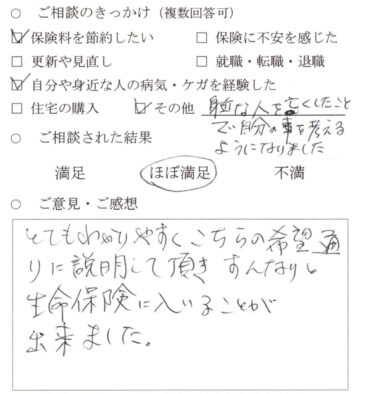 ○ ご相談のきっかけ（複数回答可）
☑ 保険料を節約したい □ 保険に不安を感じた
□ 更新や見直し □ 就職・転職・退職
☑ 自分や身近な人の病気・ケガを経験した
□ 住宅の購入 ☑ その他 身近な人を亡くしたこと
で自分の事を考える
ようになりました
○ ご相談された結果
満足 ほぼ満足 不満
○ ご意見・ご感想
とてもわかりやすくこちらの希望通
りに説明して頂き すんなりと
生命保険に入いることが
出来ました。